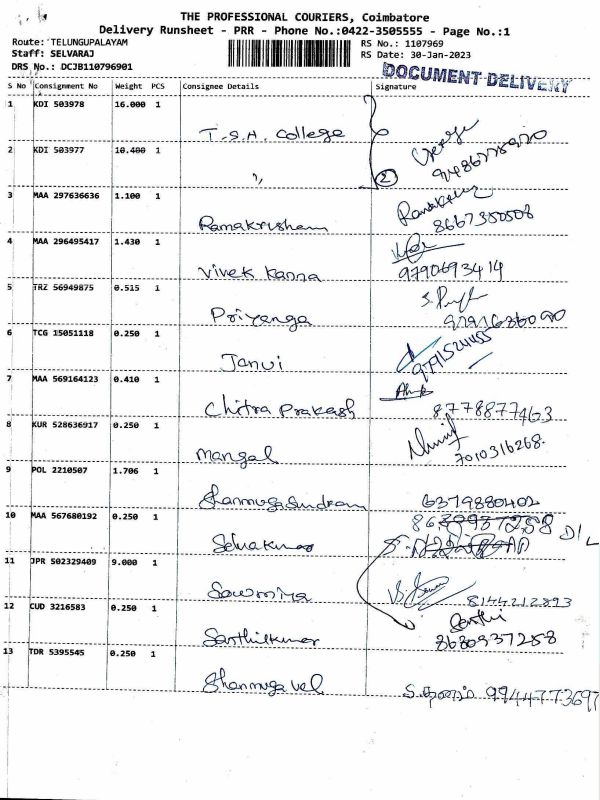 THE PROFESSIONAL COURIERS, Coimbatore
Delivery Runsheet - PRR - Phone No.:0422-3505555 - Page No.:1
Route: TELUNGUPALAYAM
Staff: SELVARAJ
DRS No.: DCJB110796901
RS No.: 1107969
RS Date: 30-Jan-2023
DOCUMENT DELIVERY
S No Consignment No Weight PCS Consignee Details Signature
1 KDI 503978 16.000 1
T.S.A. College
2 KDI 503977 10.400 1
,, 2
3 MAA 297636636 1.100 1
Ramakrishnan 8667350508
4 MAA 296495417 1.430 1
Vivek Kanna 9790693414
5 TRZ 56949875 0.515 1
Priyanga
6 TCG 15051118 0.250 1
Janvi 9791524455
7 MAA 569164123 0.410 1
Chitra Prakash 8778877463
8 KUR 528636917 0.250 1
Mangal 7010316268.
9 POL 2210507 1.706 1
Shanmugasundram 6379880402
10 MAA 567680192 0.250 1
Selvakumar D/L
11 JPR 502329409 9.000 1
Sowmiya 8144212893
12 CUD 3216583 0.250 1
Santhilkumar 8680937258
13 TDR 5395545 0.250 1
Shanmugavel 9944773697